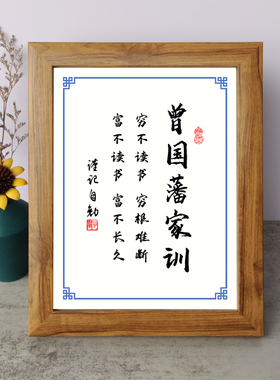 曾国藩家训
穷不读书 穷根难断
富不读书 富不长久
谨记自勉